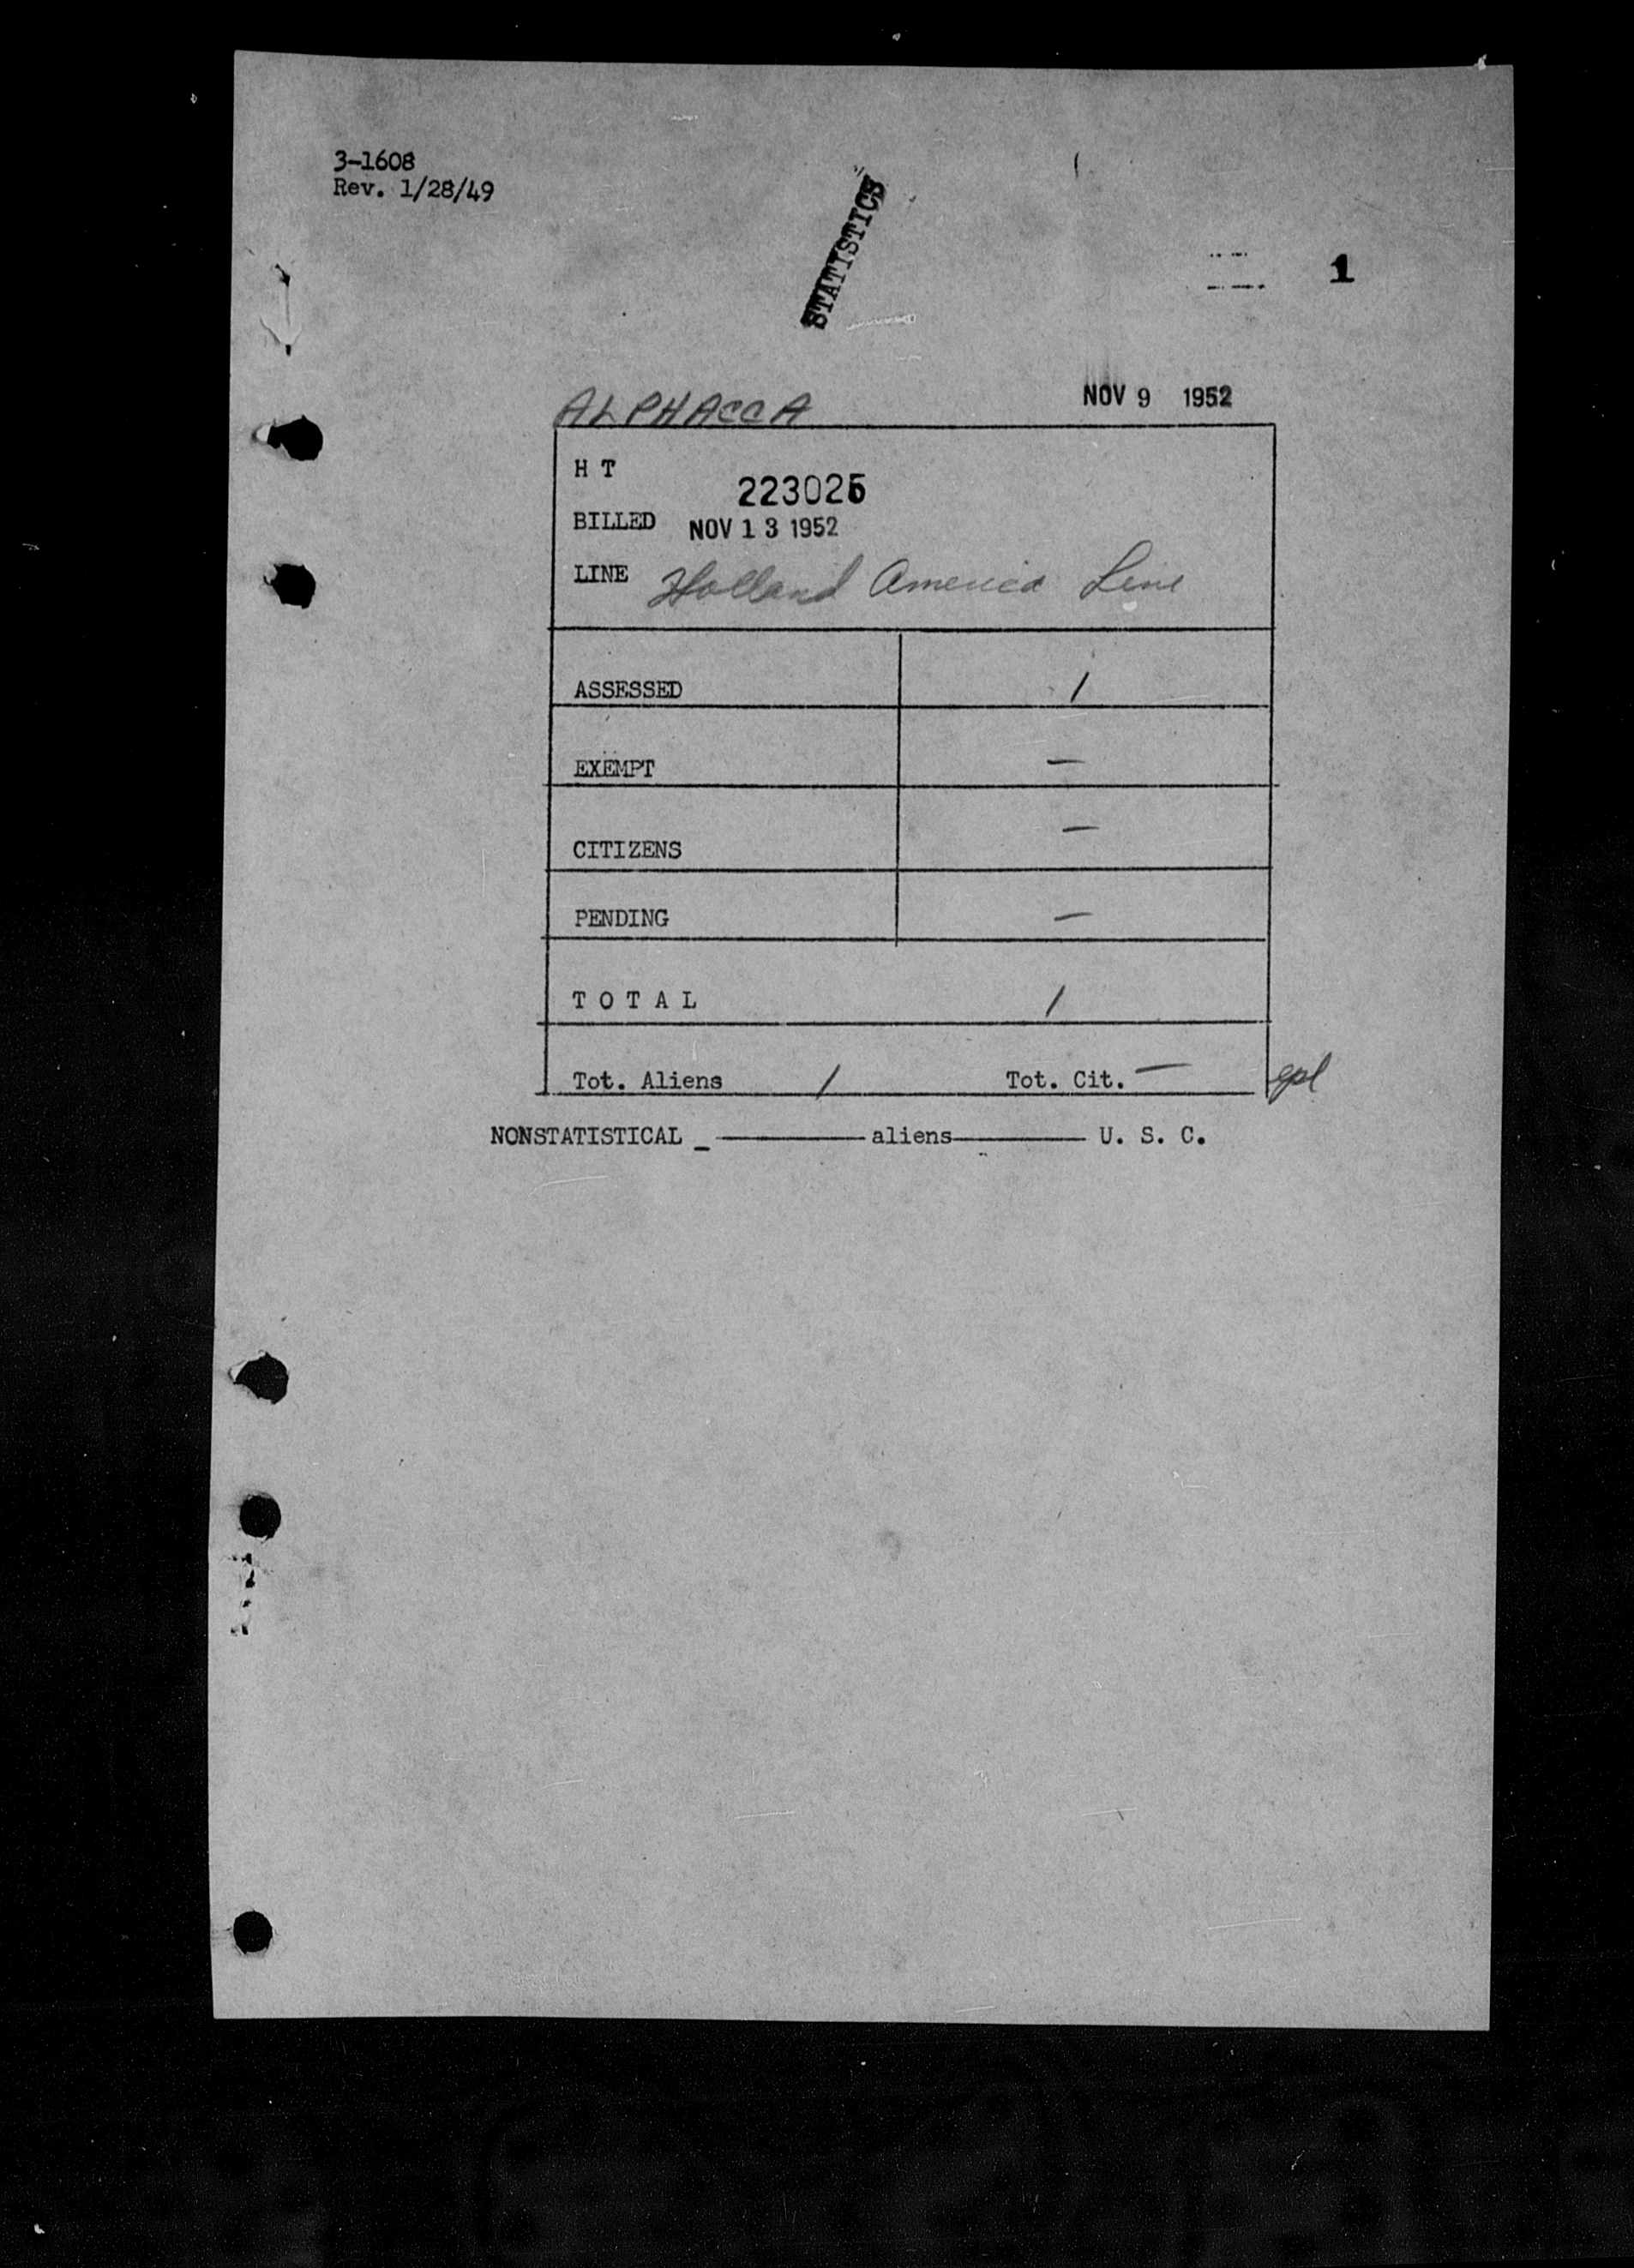 3-1608
Rev. 1/28/49
STATISTICS
1
ALPHACCA
NOV 9 1952
H T 223025
BILLED NOV 13 1952
LINE Holland America Line
ASSESSED 1
EXEMPT —
CITIZENS —
PENDING —
T O T A L 1
Tot. Aliens 1 Tot. Cit. —
NONSTATISTICAL _ ———— aliens———— U. S. C.